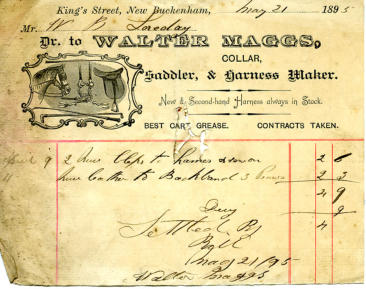 King's Street, New Buckenham, May 21 1895
Mr. W B Loveday
Dr. to WALTER MAGGS,
COLLAR,
Saddler, & Harness Maker.
New & Second-hand Harness always in Stock.
BEST CART GREASE. CONTRACTS TAKEN.
9 2 New Clips to Hames 2 6
11 New leather to Backband 2 3
9
Settled By
May 21/95
Walter Maggs